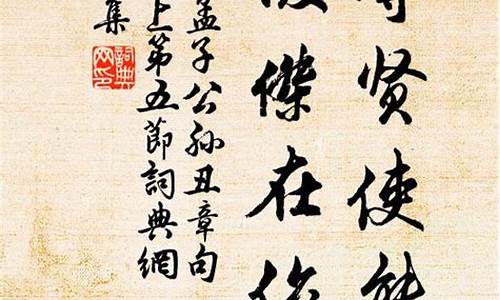 賢使能
傑在位
孟子公孫丑章句
上第五節詞典網
集
詞典
网印